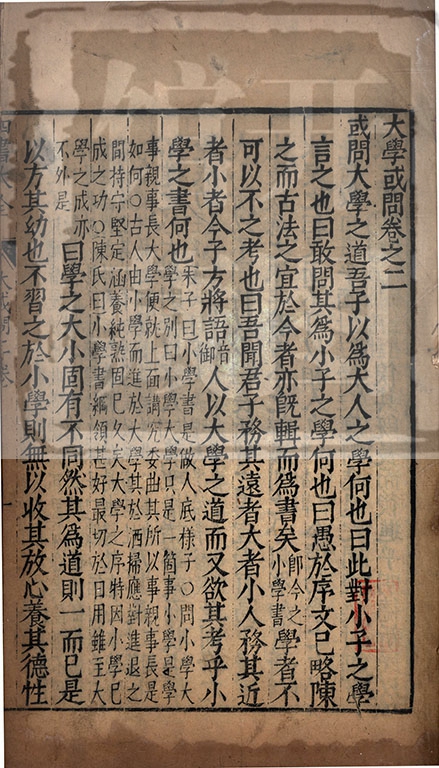 大學或問卷之二
或問大學之道吾子以爲大人之學何也曰此對小子之學
言之也曰敢問其爲小子之學何也曰愚於序文已略陳
之而古法之宜於今者亦旣輯而爲書矣即今之小學書學者不
可以不之考也曰吾聞君子務其遠者大者小人務其近
者小者今子方將語音御人以大學之道而又欲其考乎小
學之書何也朱子曰小學書是做人底樣子○問小學大
學之别曰小學大學只是一箇事小學是學
事親事長大學便就上面講究委曲其所以事親事長是
如何○古人由小學而進於大學其於洒掃應對進退之
間持守堅定涵養純熟固已久矣大學之序特因小學已
成之功○陳氏曰小學書綱領甚好最切於日用雖至大
學之成亦
不外是曰學之大小固有不同然其爲道則一而已是
以方其幼也不習之於小學則無以收其放心養其德性
四書大全